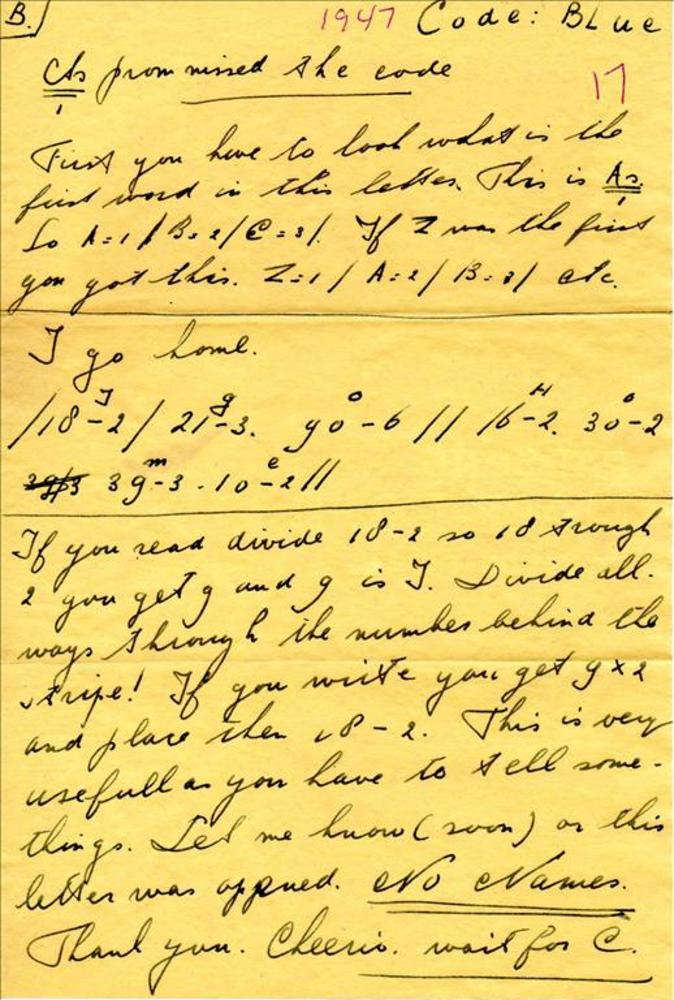 B.
1947 Code: BLue
As prommissed the code
17
First you have to look what is the
first word in this letter. This is As.
So A=1/B=2/C=3/. If Z was the first
you got this. Z=1/ A=2/ B=3/ etc.
I go home.
I g o H o
/18-2/ 21-3. 90-6 // 16-2. 30-2
m e
39-3.10-2//
If you read divide 18-2 so 18 trough
2 you get 9 and 9 is I. Divide all-
ways through the number behind the
stripe! If you write you get 9x2
and place then 18-2. This is very
usefull as you have to tell some-
things. Let me know (soon) or this
letter was oppned. No Names.
Thank you. Cheerio. wait for C.